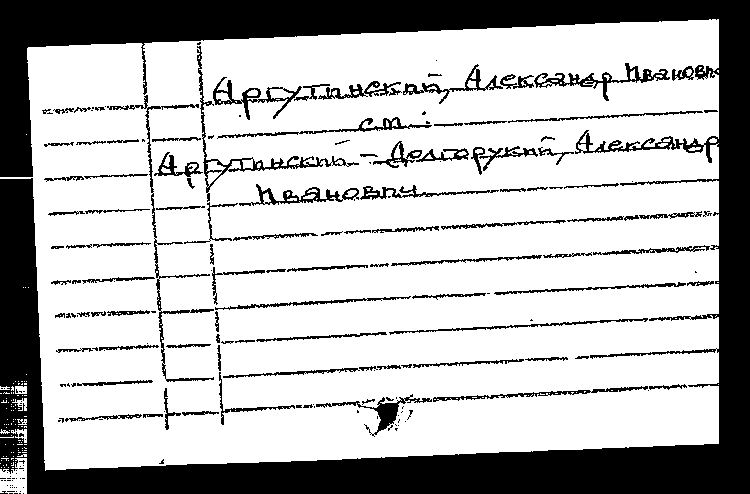 Аргутинский, Александр Иванович
см.:
Аргутинский – Долгорукий, Александр
Иванович.